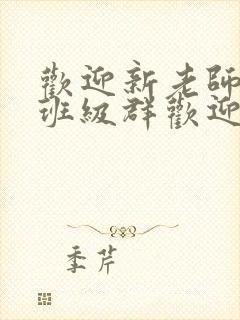 歡迎新老師
班級群歡迎
季芹